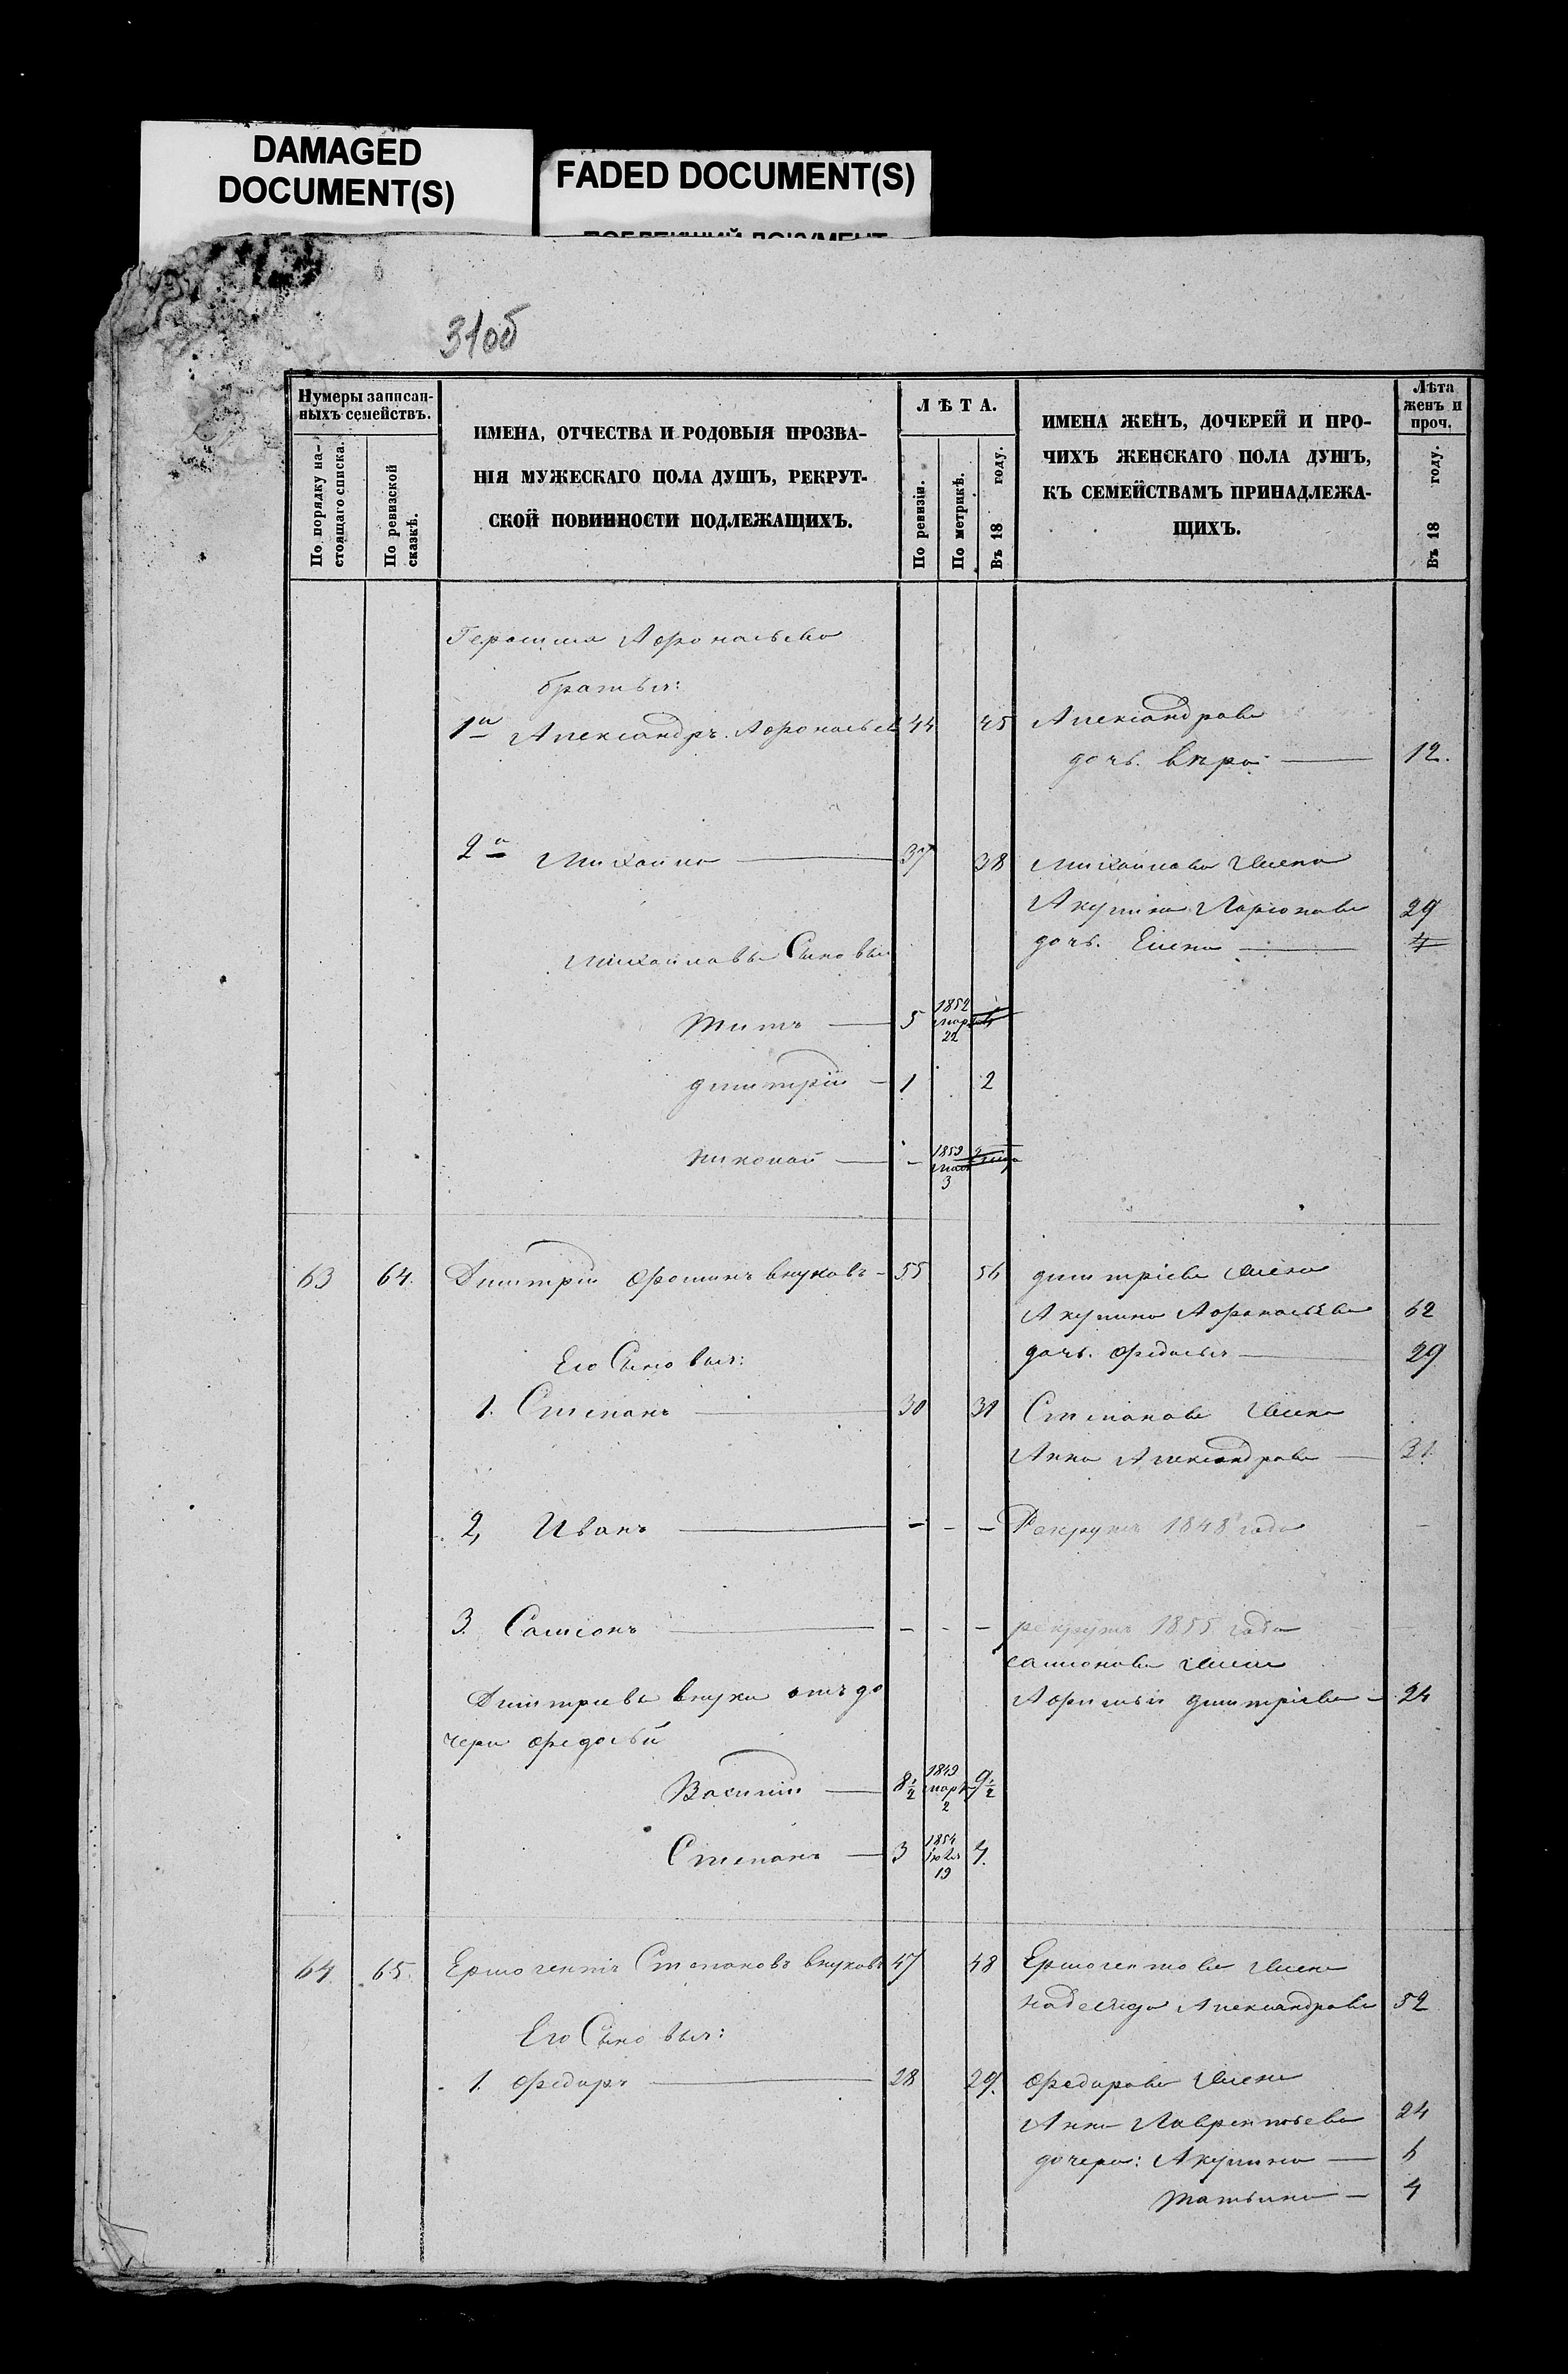 DAMAGED
DOCUMENT(S)
FADED DOCUMENT(S)
31об
Нумеры записан-
ныхъ семействъ.
По порядку на-
стоящаго списка.
По ревизской
сказкѣ.
ИМЕНА, ОТЧЕСТВА И РОДОВЫЯ ПРОЗВА-
НІЯ МУЖЕСКАГО ПОЛА ДУШЪ, РЕКРУТ-
СКОЙ ПОВИННОСТИ ПОДЛЕЖАЩИХЪ.
ЛѢТА.
По ревизіи.
По метрикѣ.
Въ 18 году.
ИМЕНА ЖЕНЪ, ДОЧЕРЕЙ И ПРО-
ЧИХЪ ЖЕНСКАГО ПОЛА ДУШЪ,
КЪ СЕМЕЙСТВАМЪ ПРИНАДЛЕЖА-
ЩИХЪ.
Лѣта
женъ и
проч.
Въ 18 году.
Герасима Афонасьева
братья:
1й Александръ Афонасьев 44 45 Александрова
дочь Вѣра 12.
2й Михайло 37 38 Михайлова жена
Акулина Ларионова 29
дочь Елена 4
Михайловы Сыновья
Титъ 5 1852 март 22
Дмитрій 1 2
Николай - 1859 3
63 64. Дмитрій Фоминъ Внуковъ 55 56 Дмитріева жена
Акулина Афонасьева 62
дочь Федосья 29
Его Сыновья:
1. Степанъ 30 31 Степанова жена
Анна Александрова 31.
2, Иванъ - - - Рекрутъ 1848 года
3. Самсонъ - - - рекрутъ 1855 года
самсонова жена
Афимья Дмитріева 24
Дмитріевы внуки отъ до
чери Федосьи
Василій 8½ 1849 март 2 9½
Степанъ 3 1854 Іюля 19 4.
64. 65. Ермогентъ Степановъ Внуковъ 47 48 Ермогентова жена
Надежда Александрова 52
Его Сыновья:
1. Федоръ 28 29. Федорова жена
Анна Лаврентьева 24
дочери: Акулина 6
Татьяна 4